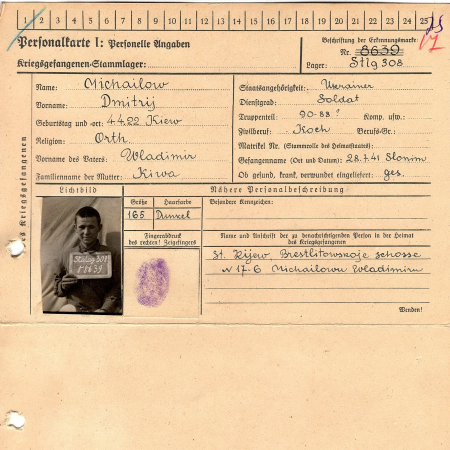 1 2 3 4 5 6 7 8 9 10 11 12 13 14 15 16 17 18 19 20 21 22 23 24 25
Personalkarte I: Personelle Angaben
Beschriftung der Erkennungsmarke
Nr. 8639
Kriegsgefangenen-Stammlager:
Lager: Stlg 308
Name: Michailow
Vorname: Dmitrij
Geburtstag und -ort: 4.4.22 Kiew
Religion: Orth.
Vorname des Vaters: Wladimir
Familienname der Mutter: Kiwa
Staatsangehörigkeit: Ukrainer
Dienstgrad: Soldat
Truppenteil: 90-88? Komp. usw.:
Zivilberuf: Koch Berufs-Gr.:
Matrikel Nr. (Stammrolle des Heimatstaates):
Gefangennahme (Ort und Datum): 28.7.41 Slonim
Ob gesund, krank, verwundet eingeliefert: ges.
des Kriegsgefangenen
Lichtbild
Nähere Personalbeschreibung
Größe Haarfarbe
165 Dunkel
Besondere Kennzeichen:
Fingerabdruck
des rechten! Zeigefingers
Name und Anschrift der zu benachrichtigenden Person in der Heimat
des Kriegsgefangenen
St. Kijew, Brestlitowskoje schosse
N 17-6 Michailowu Wladimiru
Wenden!